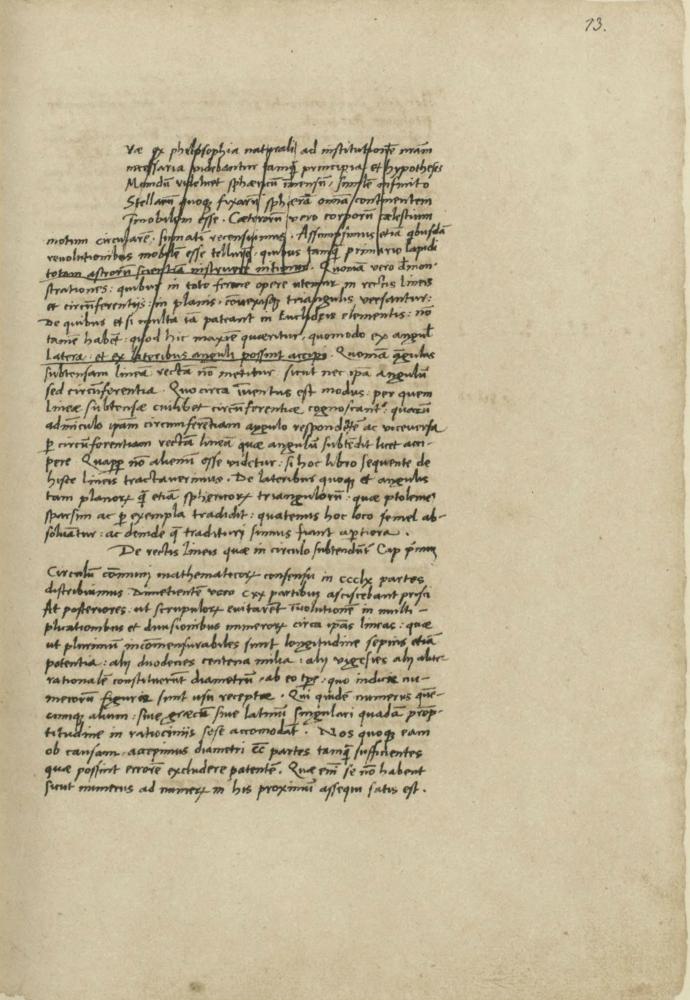 13.
væ ex philosophia naturali ad institutionē nr̄am
necessaria videbantur tamq̄ principia et hypotheses
Mundū videlicet sphæricū imensū, similē infinito
Stellarū quoq; fixarū sphærā omnia continentem
Imobilem esse. Cæterorū vero corporū cælestium
motum circularē, sumati recensuimus. Assumpsimus etiā qbusdā
revolutionibus mobilē esse tellurē, quibus tamq̄ primario lapidi
totam astrorū scientiā instruere intimur. Quoniā vero dmon-
strationes: quibus in toto ferme opere utemur in rectis lineis
et circūferentijs: in planis, convexisq; triangulis versantur:
De quibus etsi multa iā pateant in Euclideis elementis: nō
tamē habēt: quod hic maxīe quæritur, quomodo ex angul
Latera: et ex lateribus anguli possint accipi. Quoniā āgulus
subtensam linea recta nō metitur sicut nec ipā angulū
sed circūferentia. Quo circa iventus est modus: per quem
lineæ subtensæ cuilibet circūferentiæ cognoscantr: quarū
adminiculo ipam circumferentiam angulo respondētē ac viceversa
ꝑ circūferentiam rectā lineā quæ angulū subtēdit licet acci-
pere Quapp nō alienū esse videtur: si hoc libro sequente de
hisce lineis tractaverimus. De lateribus quoq; et angulis
tam planorꝝ q̄ etiā sphericorꝝ triangulorū: quæ ptolemeꝰ
sparsim ac ꝑ exempla tradidit: quatenus hoc loco semel ab-
solvantur: ac deinde q̄ tradituri sumus fiant aptiora.
De rectis lineis quæ in circulo subtendūt Cap primū
Circulū cōmuni mathematicorꝝ consensu in ccclx partes
distribuimus. Dimetientē vero cxx partibus asciscebant prisci
At posteriores: ut scrupulorꝝ evitarēt īvolutionē in multi-
plicationibus et divisionibus numerorꝝ circa ipās lineas: quæ
ut plurimū incōmensurabiles sunt longitudine sepius etiā
potentia: alij duodecies centena milia: alij vigesies alij aliter
rationalē constituerūt diametrū, ab eo tp̄e: quo indicæ nu-
merorū figuræ sunt usu receptæ. Qui quidē numerus que-
cumq; alium: sive græcū sive latinū singulari quadā promp-
titudine in ratiocinijs sese accomodat. Nos quoq; eam
ob causam. accepimus diametri c̄c̄ partes tamq̄ sufficientes
quæ possint errorē excludere patentē. Quæ em̄ se nō habent
sicut numerus ad numerꝝ in his proximū assequi satis est.